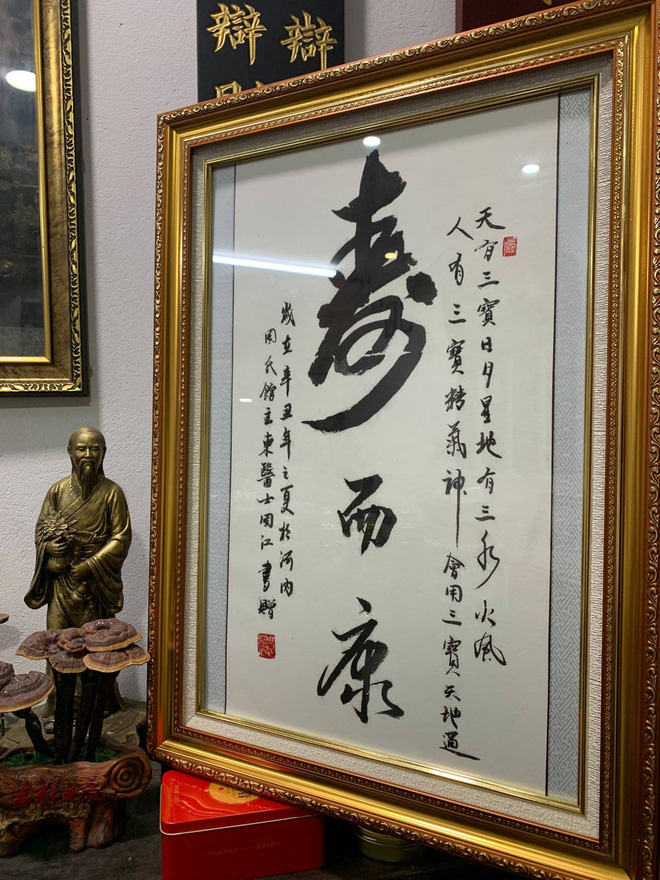 天有三寶日月星地有三水火風
人有三寶精氣神會用三寶天地通
壽而康
歲在辛丑年之夏於河內
周氏館主東醫士周江書贈